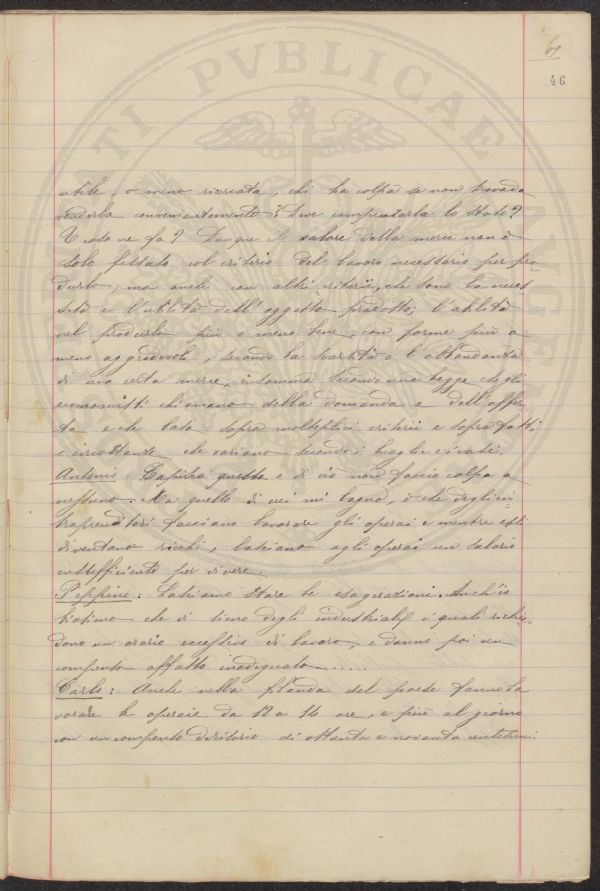 61
46
utile, o meno ricercata, chi ha colpa se non trovad a
venderla convenientemente? Deve comperarla lo Stato?
E cosa ne fa? Dunque il valore della merce non è
solo fissato col criterio del lavoro necessario per pro-
durlo; ma anche con altri criterii, che sono la neces-
sità e l'utilità dell'oggetto prodotto; l'abilità
nel produrlo più o meno bene, con forme più o
meno aggradevoli, secondo la scarsità o l'abbondanza
di una certa merce, insomma secondo una legge che gli
economisti chiamano della domanda e dell'offer-
ta e che varia sopra molteplici criterii e sopra fatti
e circostanze che variano secondo i luoghi e i casi.
Antonio: Capisco questo e di ciò non faccio colpa a
nessuno. Ma quello di cui mi lagno, è che degli in-
traprenditori facciano lavorare gli operai e mentre essi
diventano ricchi, lasciano agli operai un salario
insufficiente per vivere.
Peppino: Lasciamo stare le esagerazioni. Anch'io
biasimo che vi siano degli industriali i quali richie-
dono un orario eccessivo di lavoro, e danno poi un
compenso affatto inadeguato.....
Carlo: Anche nella filanda del paese fanno la
vorare le operaie da 12 a 14 ore, e più al giorno
con un compenso derisorio di ottanta o novanta centesimi
PVBLICAE